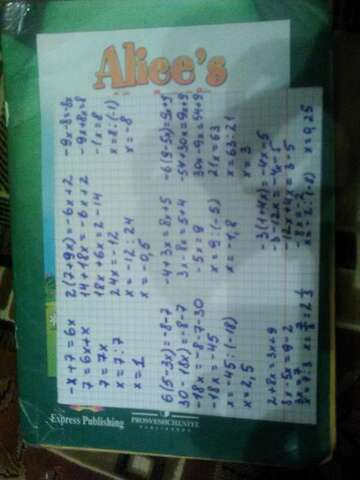 Alice's
-x+7=6x
7=6x+x
7=7x
x=7:7
x=1
2(7+9x)=-6x+2
14+18x=-6x+2
18x+6x=2-14
24x=-12
x=-12:24
x=-0,5
-9x-8=-8x
-9x+8x=8
-1x=8
x=8:(-1)
x=-8
6(5-3x)=-8-7
30-18x)=-8-7
-18x=-8-7-30
-18x=-45
x=-45:(-18)
x=2,5
-4+3x=8x+5
3x-8x=5+4
-5x=9
x=9:(-5)
x=-1,8
-6(9-5x)=9x+9
-54+30x=9x+9
30x-9x=54+9
21x=63
x=63:21
x=3
2+8x=3x+9
x=7:3
-3(1+4x)=-4x-5
-3-12x=-4x-5
-12x+4x=3-5
-8x=-2
x=0,25
Express Publishing
PROSVESHCHENIYE
PUBLISHERS